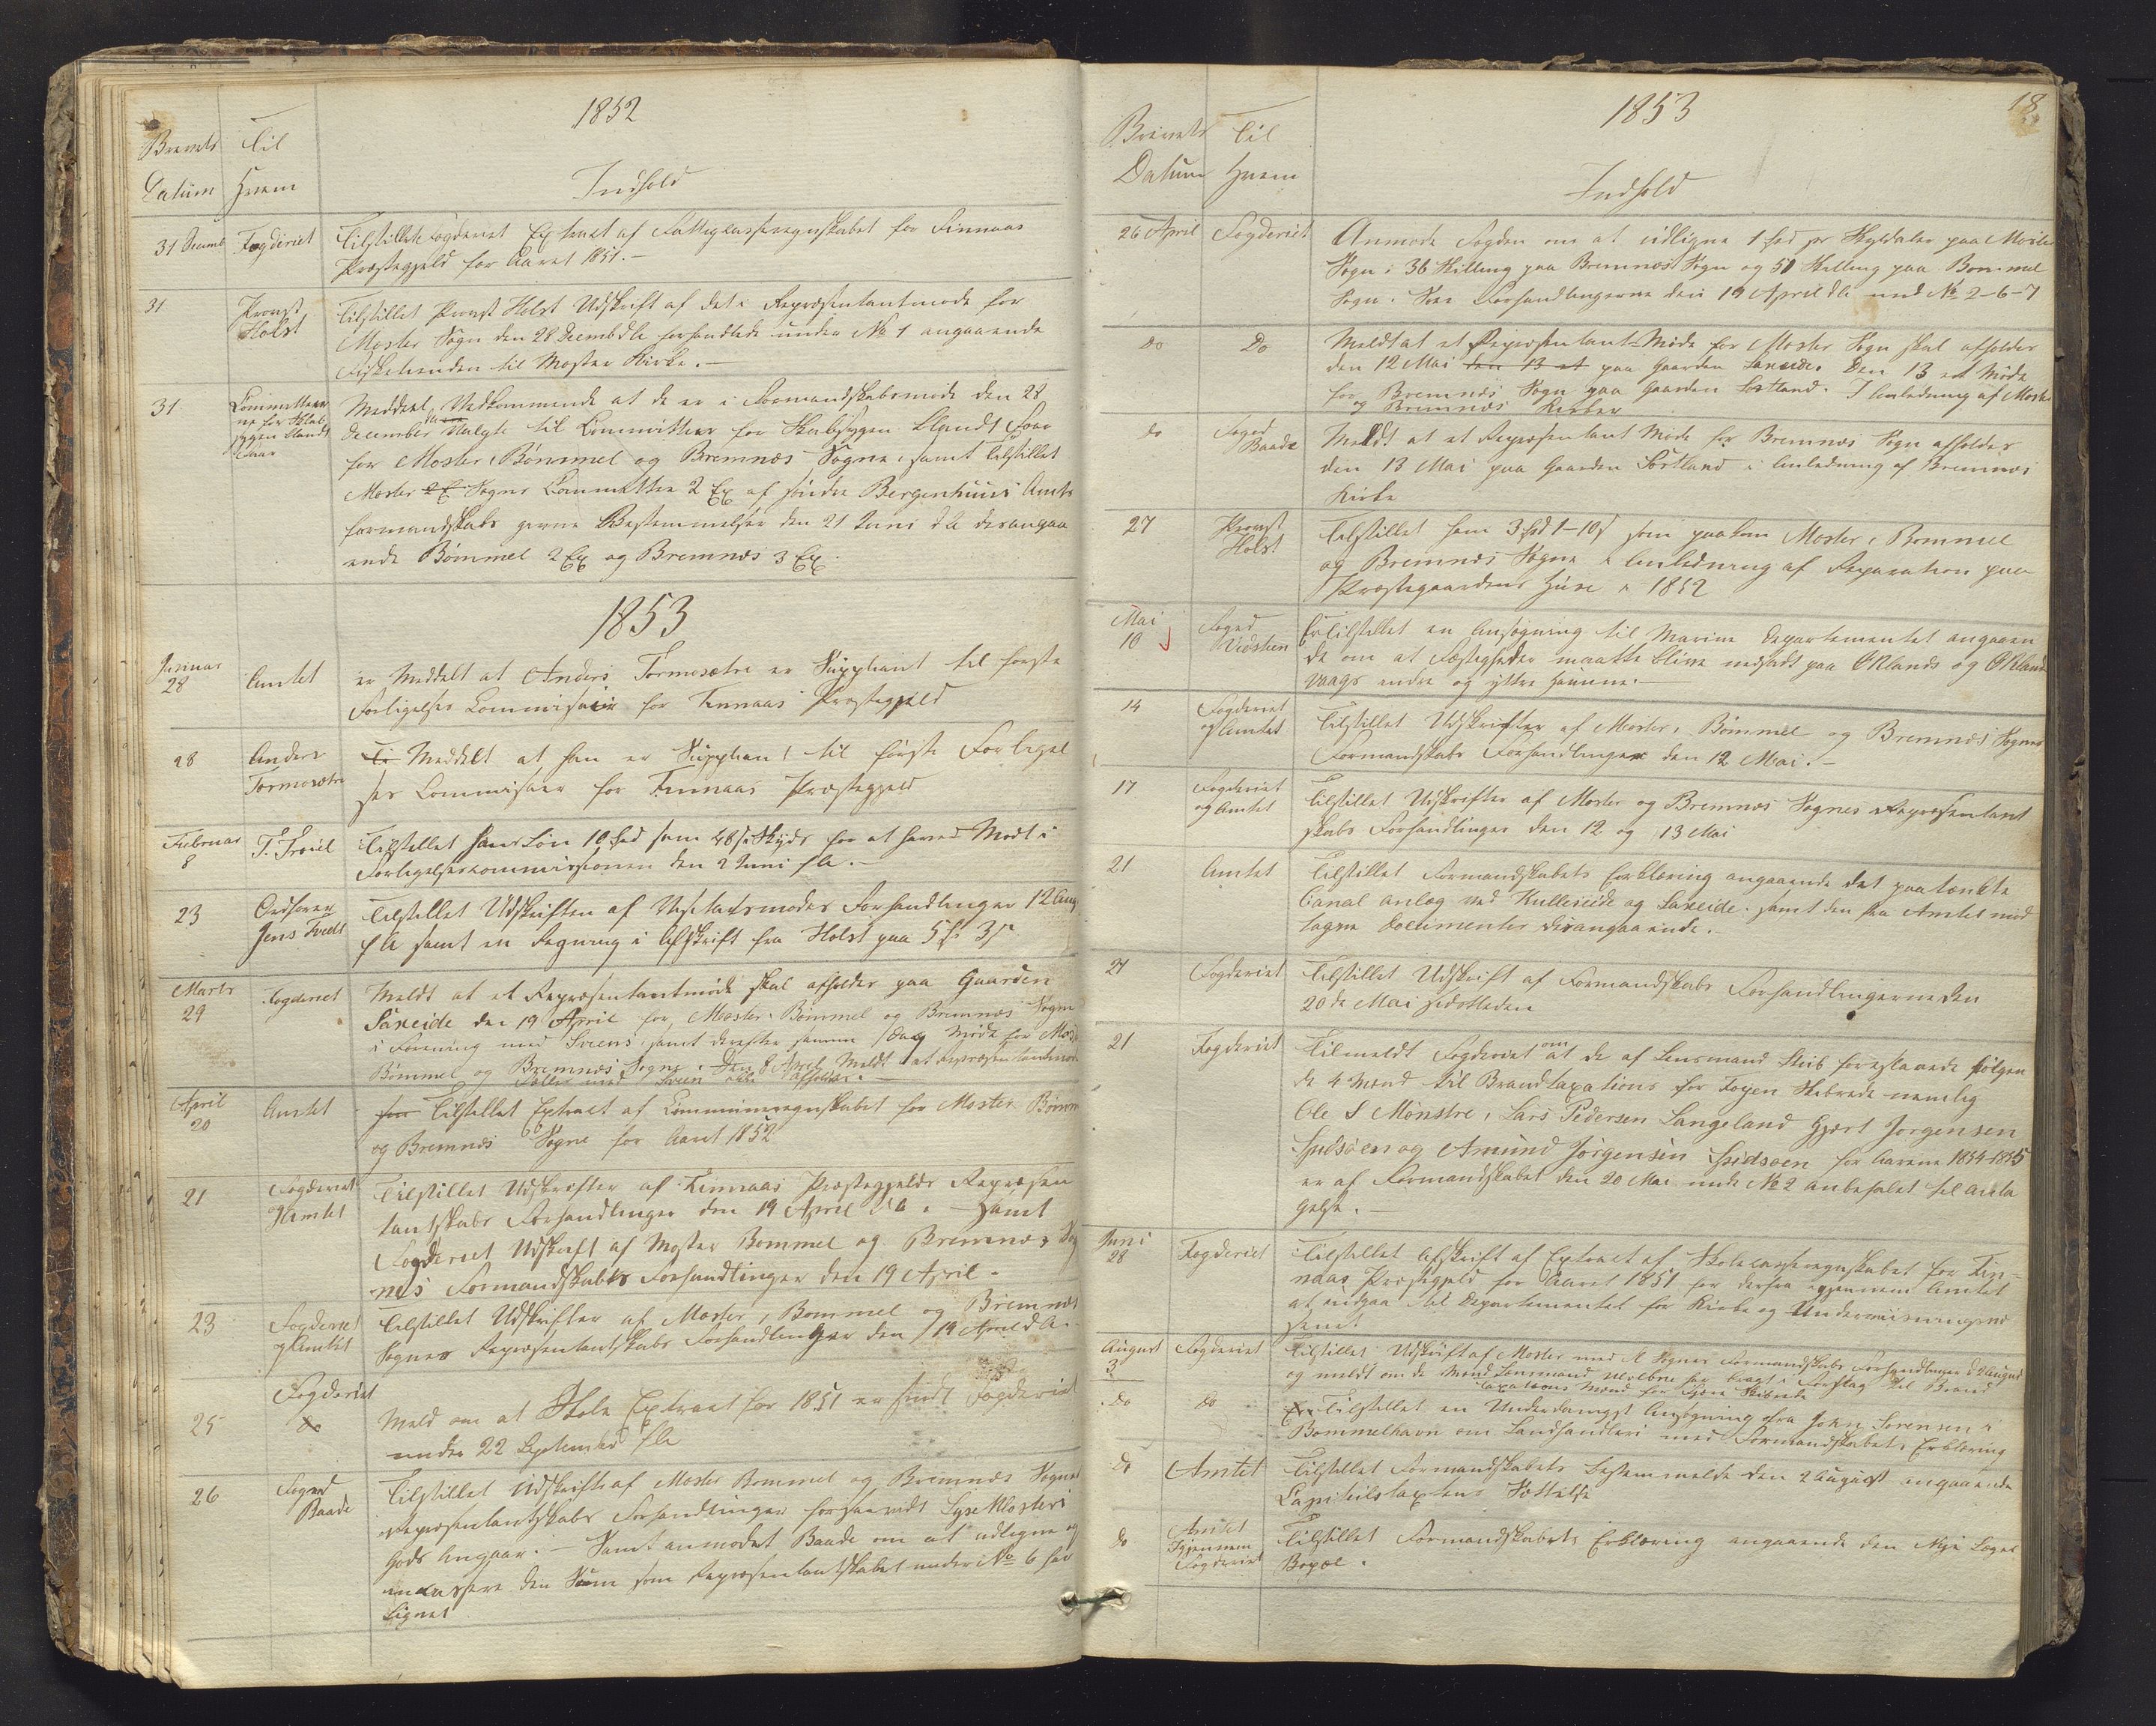 1852
Brevets Til
Datum Hvem
Indhold
31 Decemb Fogderiet Tilstillet Fogderiet Extract af Fattigkasseregnskabet for Finnaas
Præstegjeld for Aaret 1851.-
31 Provst Holst Tilstillet Provst Holst Udskrift af det i Repræsentantmøde for
Moster Sogn den 28 Decemb dA forhandlede under No 1 angaaende
Fisketienden til Moster Kirke.-
31 Committeer
ne for Skab
sygen blandt
Faar
Meddeel Vedkommende at de er i Formandskabsmøde den 28
December valgte til Committeer for Skabsygen blandt Faar
for Moster, Bømmel og Bremnæs Sogne, samt tilstillet
Moster Sogns Committee 2 Ex af søndre Bergenhuus Amts
formandskabs Bestemmelser den 21 Juni dA desangaa
ende Bømmel 2 Ex og Bremnæs 3 Ex.
1853
Januar
28 Amtet er Meddelt at Anders Tormosætre er Suppliant til første
Forligelses Commissair for Finnaas Præstegjeld
28 Anders
Tormosætre
Meddelt at han er Suppliant til første Forligel
ses Commissær for Finnaas Præstegjeld
Februar
8 Tilstillet hans Løn som Skyds for at have Mødt i
Forligelseskommissionen den 2 Juni fA.-
23 Ordfører
Jens Tvedt
Tilstillet Udskriften af Forhandlinger 12 Aug
fA samt en Regning i Afskrift fra Holst paa 5
Marts
29 Fogderiet Meldt at et Repræsentantmøde skal afholdes paa Gaarden
Søreide den 19 April for Moster, Bømmel og Bremnæs Sogne
i Forening med samt derefter samme Dag Møde for Moster
Bømmel og Bremnæs Sogne. Den 8 April Meldt at repræsentantmøde
fælles med ikke afholdes.-
April
20 Amtet Tilstillet Extract af Communeregnskabet for Moster Bømm
og Bremnæs Sogne for Aaret 1852
21 Fogderiet
og Amtet
Tilstillet Udskrifter af Finnaas Præstegjelds Repræsen
tantskabs Forhandlinger den 19 April dA. - Samt
Fogderiet Udskrift af Moster Bømmel og Bremnæs Sog
nes Formandskabs Forhandlinger den 19 April.
23 Fogderiet
og Amtet
Tilstillet Udskrifter af Moster, Bømmel og Bremnæs
Sognes Repræsentantskabs Forhandlinger den 19 April dA.
25 Fogderiet
Meld om at Skole Extract for 1851 er sendt Fogderiet
under 22 September fA
26 Foged
Baade
Tilstillet Udskrift af Moster Bømmel og Bremnæs Sognes
Repræsentantskabs Forhandlinger forsaavidt Lyse Klosters
Gods Angaar.- Samt anmodet Baade om at udligne og
incassere den Sum som Repræsentantskabet under No 6 har
Lignet
1853 18
Brevets Til
Datum Hvem
Indhold
26 April Fogderiet Anmode Fogden om at udligne 1 pr Skyldaler paa Moster
Sogn, 36 Skilling paa Bremnæs Sogn og 51 Skilling paa Bømmel
Sogn. See Forhandlingerne den 19 April dA under No 2-6-7
Do Do Meldt at et Repræsentant-Møde for Moster Sogn skal afholdes
den 12 Mai den 13 et paa Gaarden Søreide. Den 13 et Møde
for Bremnæs Sogn paa Gaarden Sortland. I Anledning af Moster
og Bremnæs Kirker
do Foged
Baade
Meldt at et Repræsentant Møde for Bremnæs Sogn afholdes
den 13 Mai paa Gaarden Sortland i Anledning af Bremnæs
Kirke
27 Provst
Holst
Tilstillet ham som paakom Moster, Bømmel
og Bremnæs Sogne i Anledning af Reparation paa
Præstegaardens Huse i 1852
Mai
10 Foged
Vidsteen
Er Tilstillet en Ansøgning til Marine Departementet angaaen
de om at Fæstigheder maatte blive nedsadt paa Øklands og Øklands
Vaags indre og ydtre Havne.-
14 Fogderiet
og Amtet
Tilstillet Udskrifter af Moster, Bømmel og Bremnæs Sognes
Formandskabs Forhandlinger den 12 Mai.-
17 Fogderiet
og Amtet
Tilstillet Udskrifter af Moster og Bremnæs Sognes Repræsentant
skabs Forhandlinger den 12 og 13 Mai
21 Amtet Tilstillet Formandskabets Erklæring angaaende det paatænkte
Canal anlæg ved Kulleseide og Søreide. samt den fra Amtet mod
tagne Documenter desangaaende.
21 Fogderiet Tilstillet Udskrift af Formandskabs Forhandlingerne den
20de Mai sidstleden
21 Fogderiet Tilmeldt Fogderiet om at de af Lensmand foreslaaede følgen
de 4 Mænd til Brandtaxations for Skibrede nemlig
Ole S Mønstre, Lars Pedersen Langeland Gjert Jørgensen
Spidsøen og Amund Jørgensen Spidsøen for Aarene 1854-1855
er af Formandskabet den 20 Mai under No 2 Anbefalet til Anta
gelse.-
Juni
28 Fogderiet Tilstillet Afskrift af Extract af Skolecasseregnskabet for Fin-
naas Præstegjeld for Aaret 1851 for derfra igjennem Amtet
at indgaa til Departementet for Kirke og Underviisningsvæ
senet
August
3 Fogderiet Tilstillet Udskrift af Moster med fl Sognes Formandskabs Forhandlinger d 2 August
og meldt om de Mænd Lensmand har bragt i Forslag til Brand
taxations Mænd for Skibrede
do do Tilstillet en Underdanigst Ansøgning fra John Sørensen i
Bømmelhavn om Landhandleri med Formandskabets Erklæring
do Amtet Tilstillet Formandskabets bestemmelse den 2 August angaaende
Capitelstaxtens Fastsættelse
do Amtet
Igjennem
Fogderiet
Tilstillet Formandskabets Erklæring angaaende den Nye Læges
Bopæl.